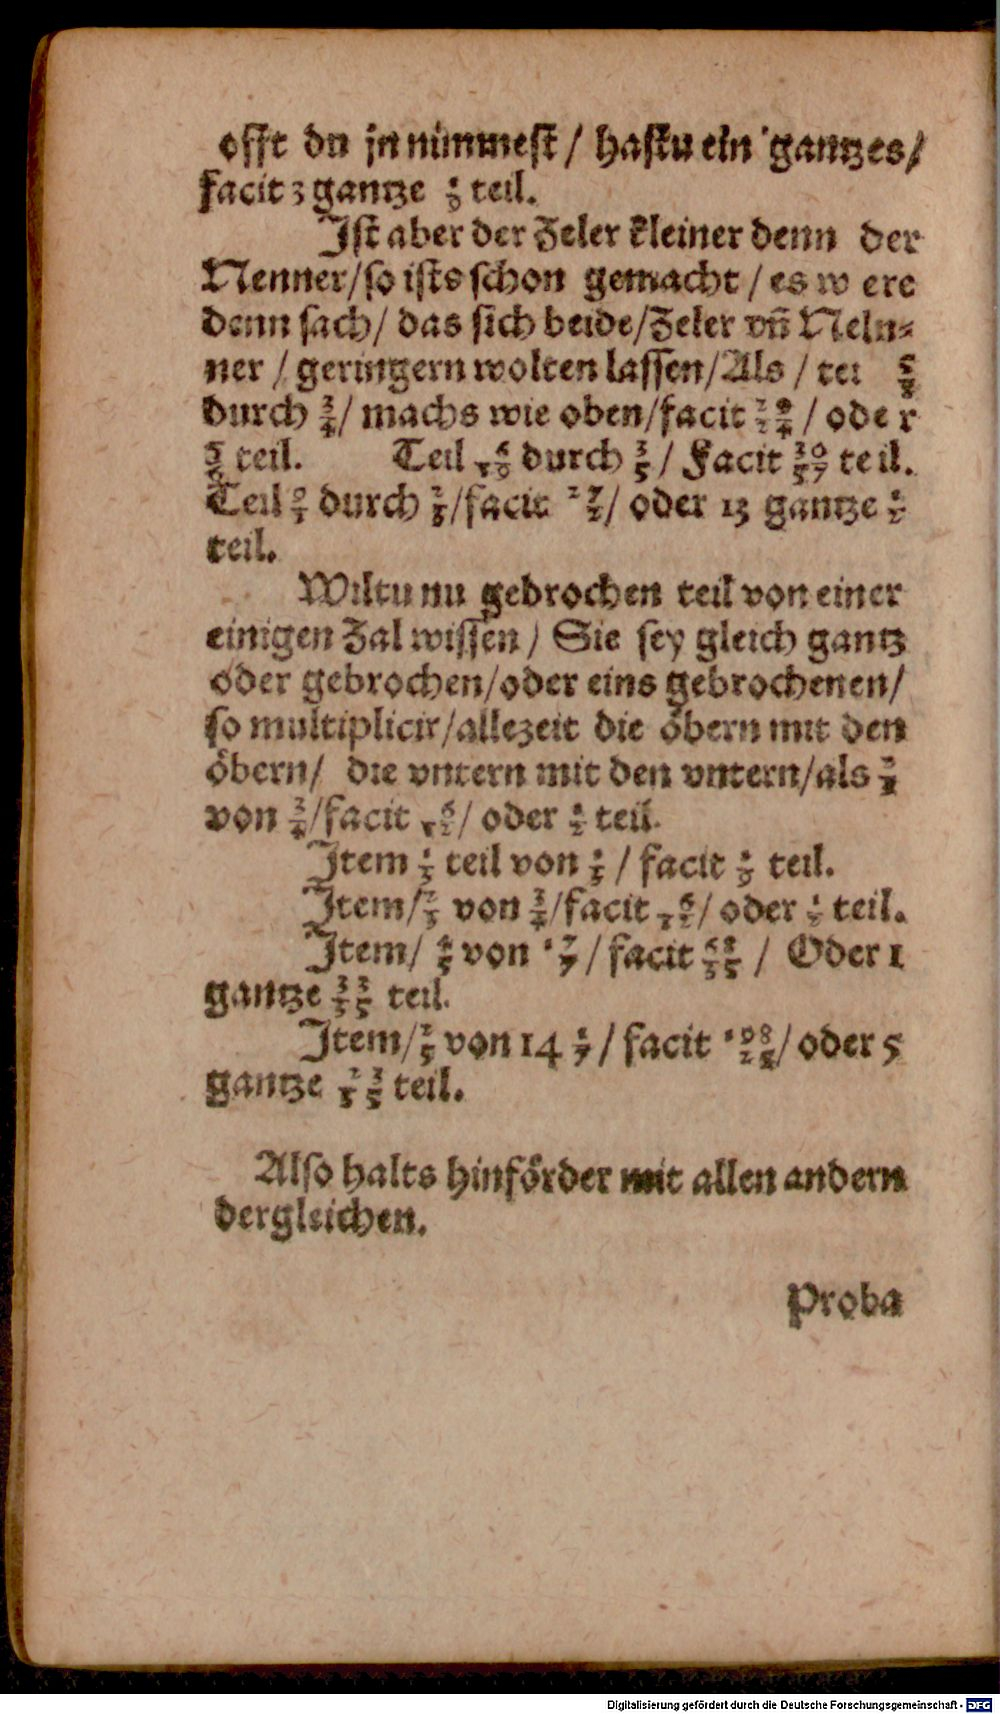 offt du jn nimmest / hastu ein gantzes /
facit 3 gantze teil.
Jst aber der Zeler kleiner denn der
Nenner / so ists schon gemacht / es w ere
denn sach / das sich beide / Zeler vñ Neln-
ner / geringern wolten lassen / Als / tei 5/8
durch 3/4 / machs wie oben / facit 20/24 / ode r
5/6 teil. Teil 6/19 durch 3/5 / Facit 30/57 te il.
Teil 9/1 durch 2/3 / facit 27/2 / oder 13 gantze 1/2
teil.
Wiltu nu gebrochen teil von einer
einigen Zal wissen / Sie sey gleich gantz
oder gebrochen / oder eins gebrochenen /
so multiplicir / allezeit die öbern mit den
öbern / die vntern mit den vntern / als 2/3
von 3/4 / facit 6/12 / oder 1/2 teil.
Jtem 1/3 teil von 1/3 / facit 1/9 teil.
Jtem / 2/3 von 3/4 / facit 6/12 / oder 1/2 teil.
Jtem / 4/5 von 17/7 / facit 68/35 / Oder 1
gantze 33/35 teil.
Jtem / 2/5 von 14 1/7 / facit 198/35 / oder 5
gantze 23/35 teil.
Also halts hinförder mit allen andern
dergleichen.
Proba
Digitalisierung gefördert durch die Deutsche Forschungsgemeinschaft - DFG